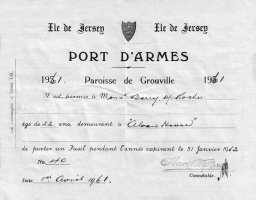 Ile de Jersey Ile de Jersey
PORT D'ARMES
1961. Paroisse de Grouville 1961
Il est permis à Monsr Barry H. Roche
age de 22 ans, demeurant à "Alvas House"
de porter un Fusil pendant l'année expirant le 31 Janvier 1962
No. 40
Connétable
Date 1er Avril 1961.